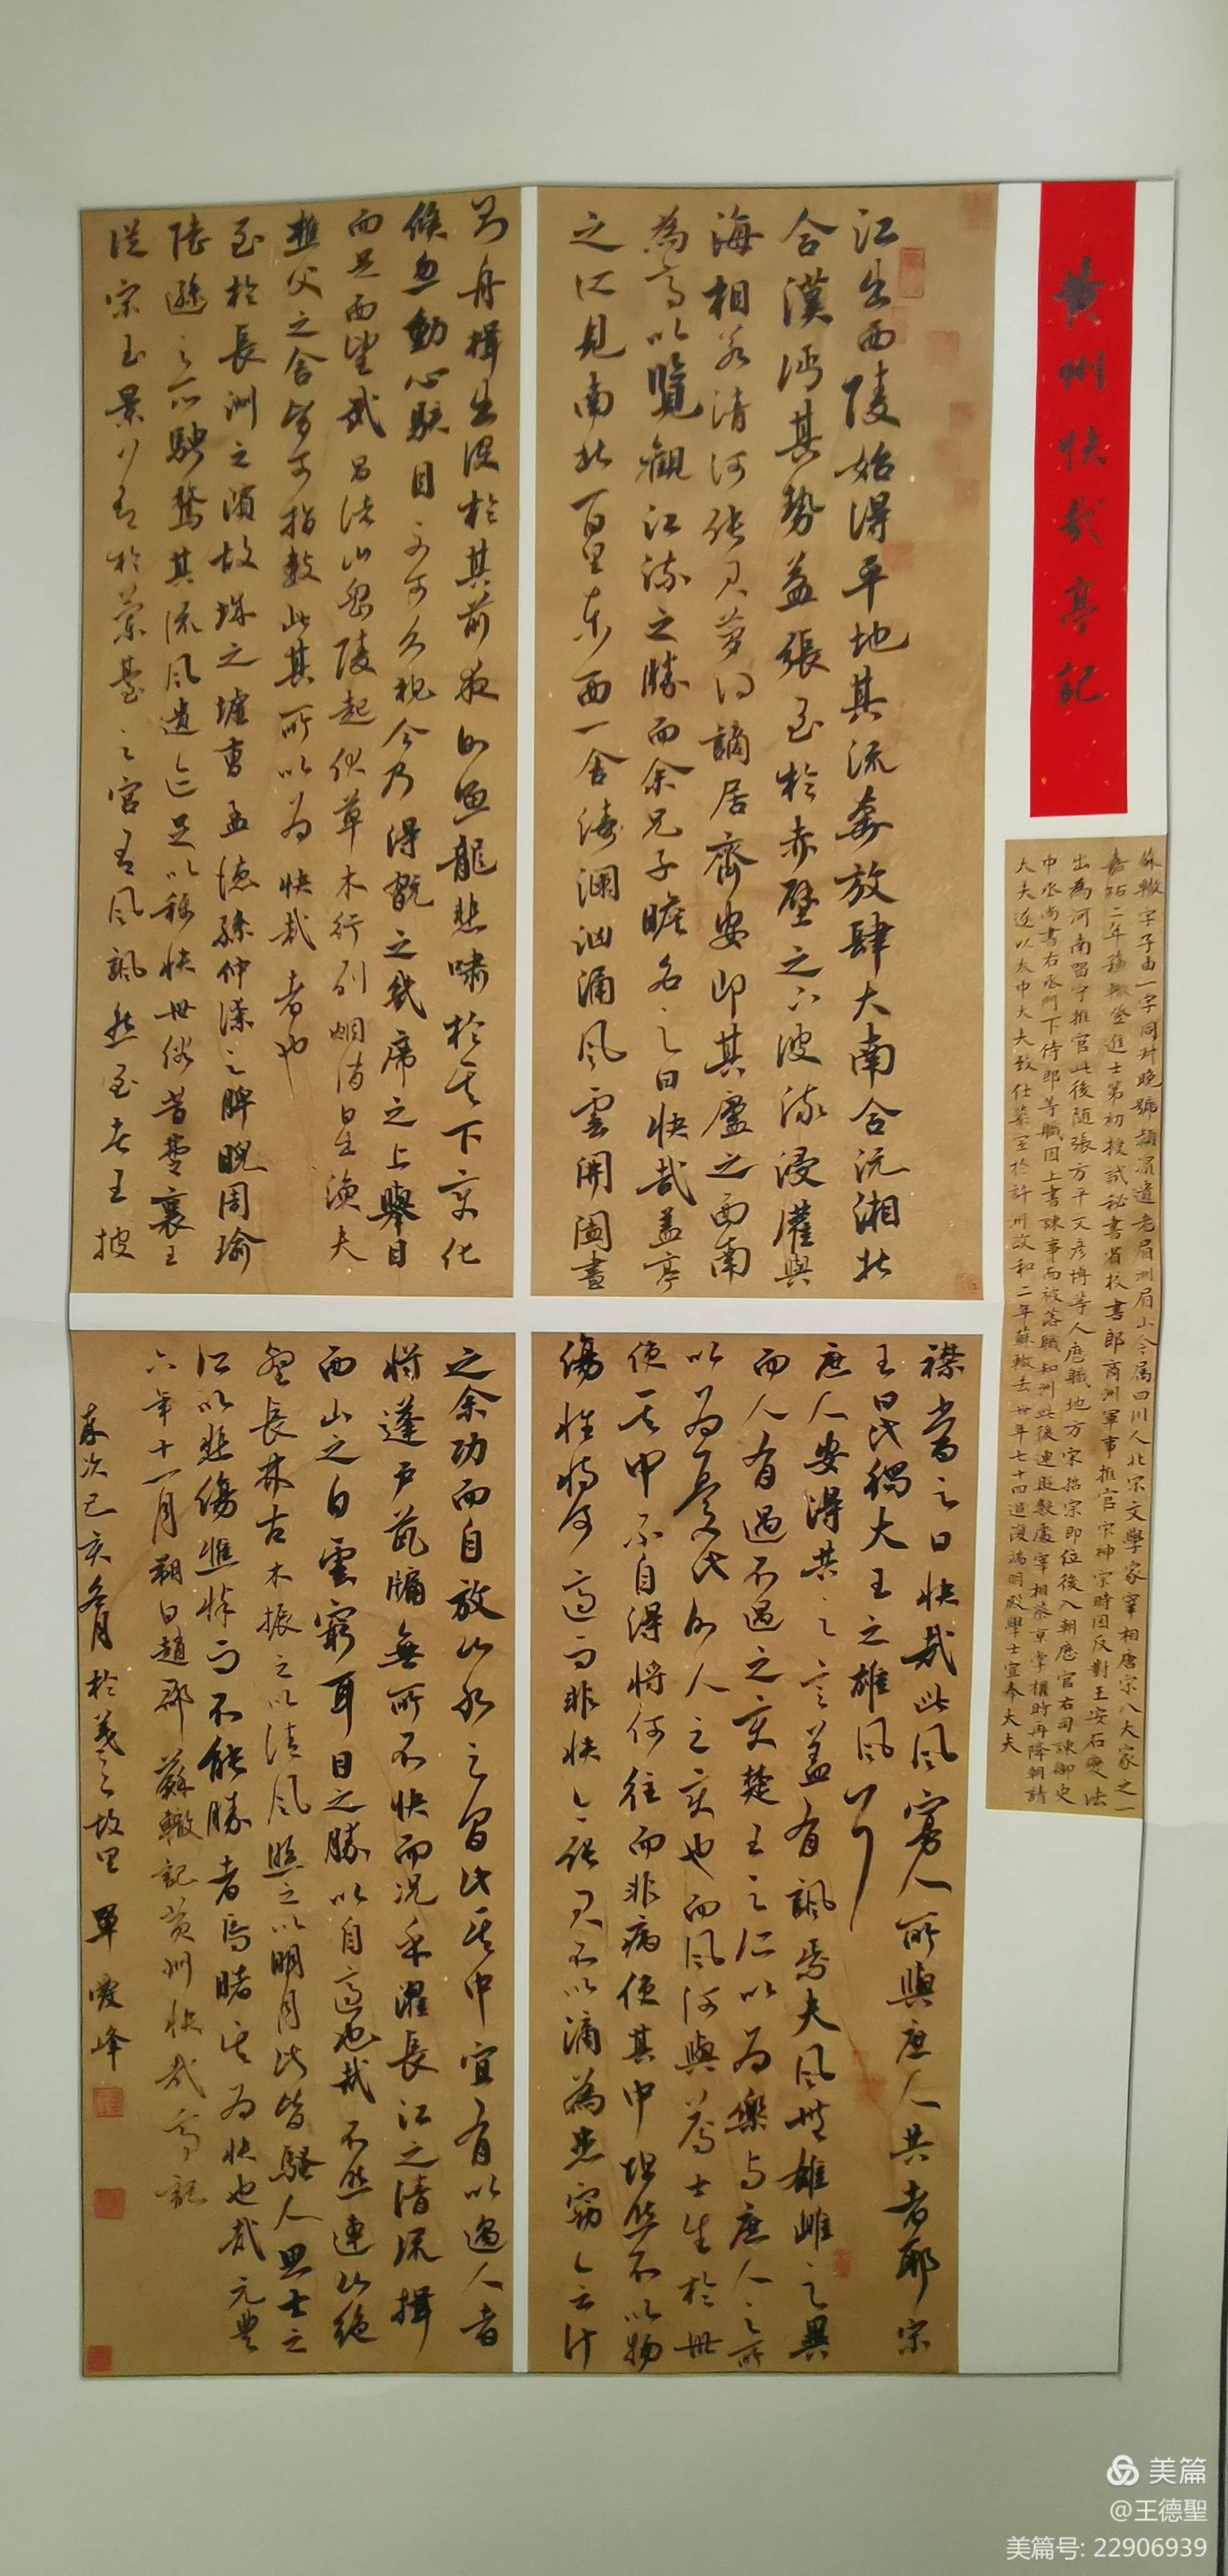 黄州快哉亭記
蘇轍字子由一字同叔晚號潁濱遺老眉州眉山今属四川人北宋文學家宰相唐宋八大家之一
嘉祐二年蘇轍登進士第初授試秘書省校書郎商洲軍事推官宗神宗時因反對王安石變法
出為河南留守推官此後随張方平文彦博等人歷職地方宋招宗即位後入朝歷官右司諫御史
中丞尚書右丞門下侍郎等職因上書諫事而被落職知州此後連貶數處宰相蔡京掌權時再降朝請
大夫遂以太中大夫致仕築室於許州政和二年蘇轍去世年七十四追復端明殿學士宣奉大夫
江出西陵始得平地其流奔放肆大南合沅湘北
合漢沔其勢益張至於赤壁之下波流浸灌與
海相若清河張君夢得謫居齊安即其廬之西南
為亭以覽觀江流之勝而余兄子瞻名之曰快哉蓋亭
之所見南北百里東西一舍濤瀾洶湧風雲開闔晝
則舟楫出没於其前夜則魚龍悲嘯於其下变化
倏忽動心駭目不可久視今乃得翫之几席之上舉目
而足西望武昌諸山岡陵起伏草木行列烟消日出漁夫
樵父之舍皆可指數此其所以为快哉者也
至於長洲之濱故城之墟曹孟德孫仲謀之睥睨周瑜
陸遜之所騁騖其流風遺迹亦足以稱快世俗昔楚襄王
從宋玉景差於蘭臺之宮有風颯然至者王披
襟當之曰快哉此風寡人所與庶人共者耶宋
玉曰此獨大王之雄風耳
庶人安得共之之言蓋有諷焉夫風無雄雌之異
而人有遇不遇之变楚王之仁以为樂与庶人之所
以为憂此則人之变也而風何與焉士生於世
使其中不自得將何往而非病使其中坦然不以物
傷性將何適而非快今張君不以謫為患竊会計
之余功而自放山水之間此其中宜有以過人者
將蓬户甕牖無所不快而况乎濯長江之清流揖
西山之白雲窮耳目之勝以自適也哉不然連山絶
壑長林古木振之以清風照之以明月此皆騷人思士之
所以悲傷憔悴而不能勝者烏睹其为快也哉元豊
六年十一月朔日趙郡蘇轍記黄州快哉亭記
歲次己亥冬月於羲之故里單愛峰
美篇
@王德聖
美篇号: 22906939